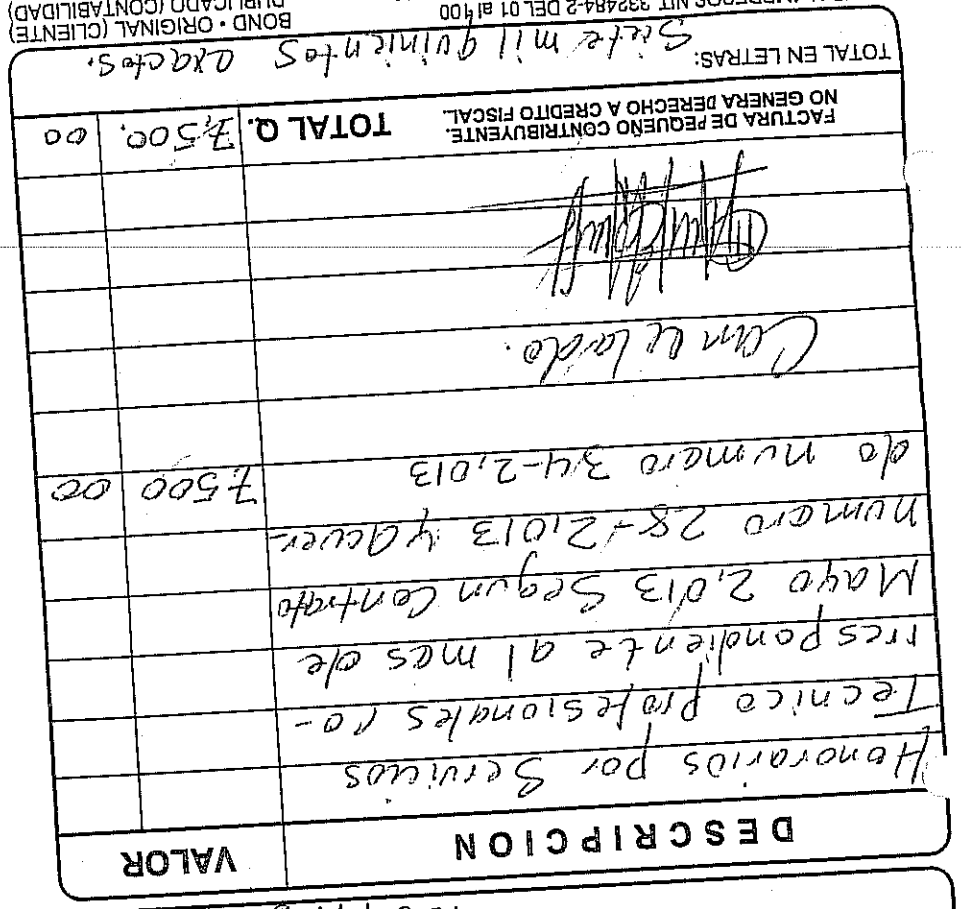 DESCRIPCION VALOR
Honorarios por Servicios
Tecnico profesionales co-
rrespondiente al mes de
Mayo 2,013 Segun Contrato
numero 28-2,013 y acuer-
do numero 34-2,013 7,500 00
Cancelado.
FACTURA DE PEQUEÑO CONTRIBUYENTE.
NO GENERA DERECHO A CREDITO FISCAL. TOTAL Q. 7,500. 00
TOTAL EN LETRAS: Siete mil quinientos exactos.
NIT. 332484-2 DEL 01 al 100
BOND • ORIGINAL (CLIENTE)
DUPLICADO (CONTABILIDAD)